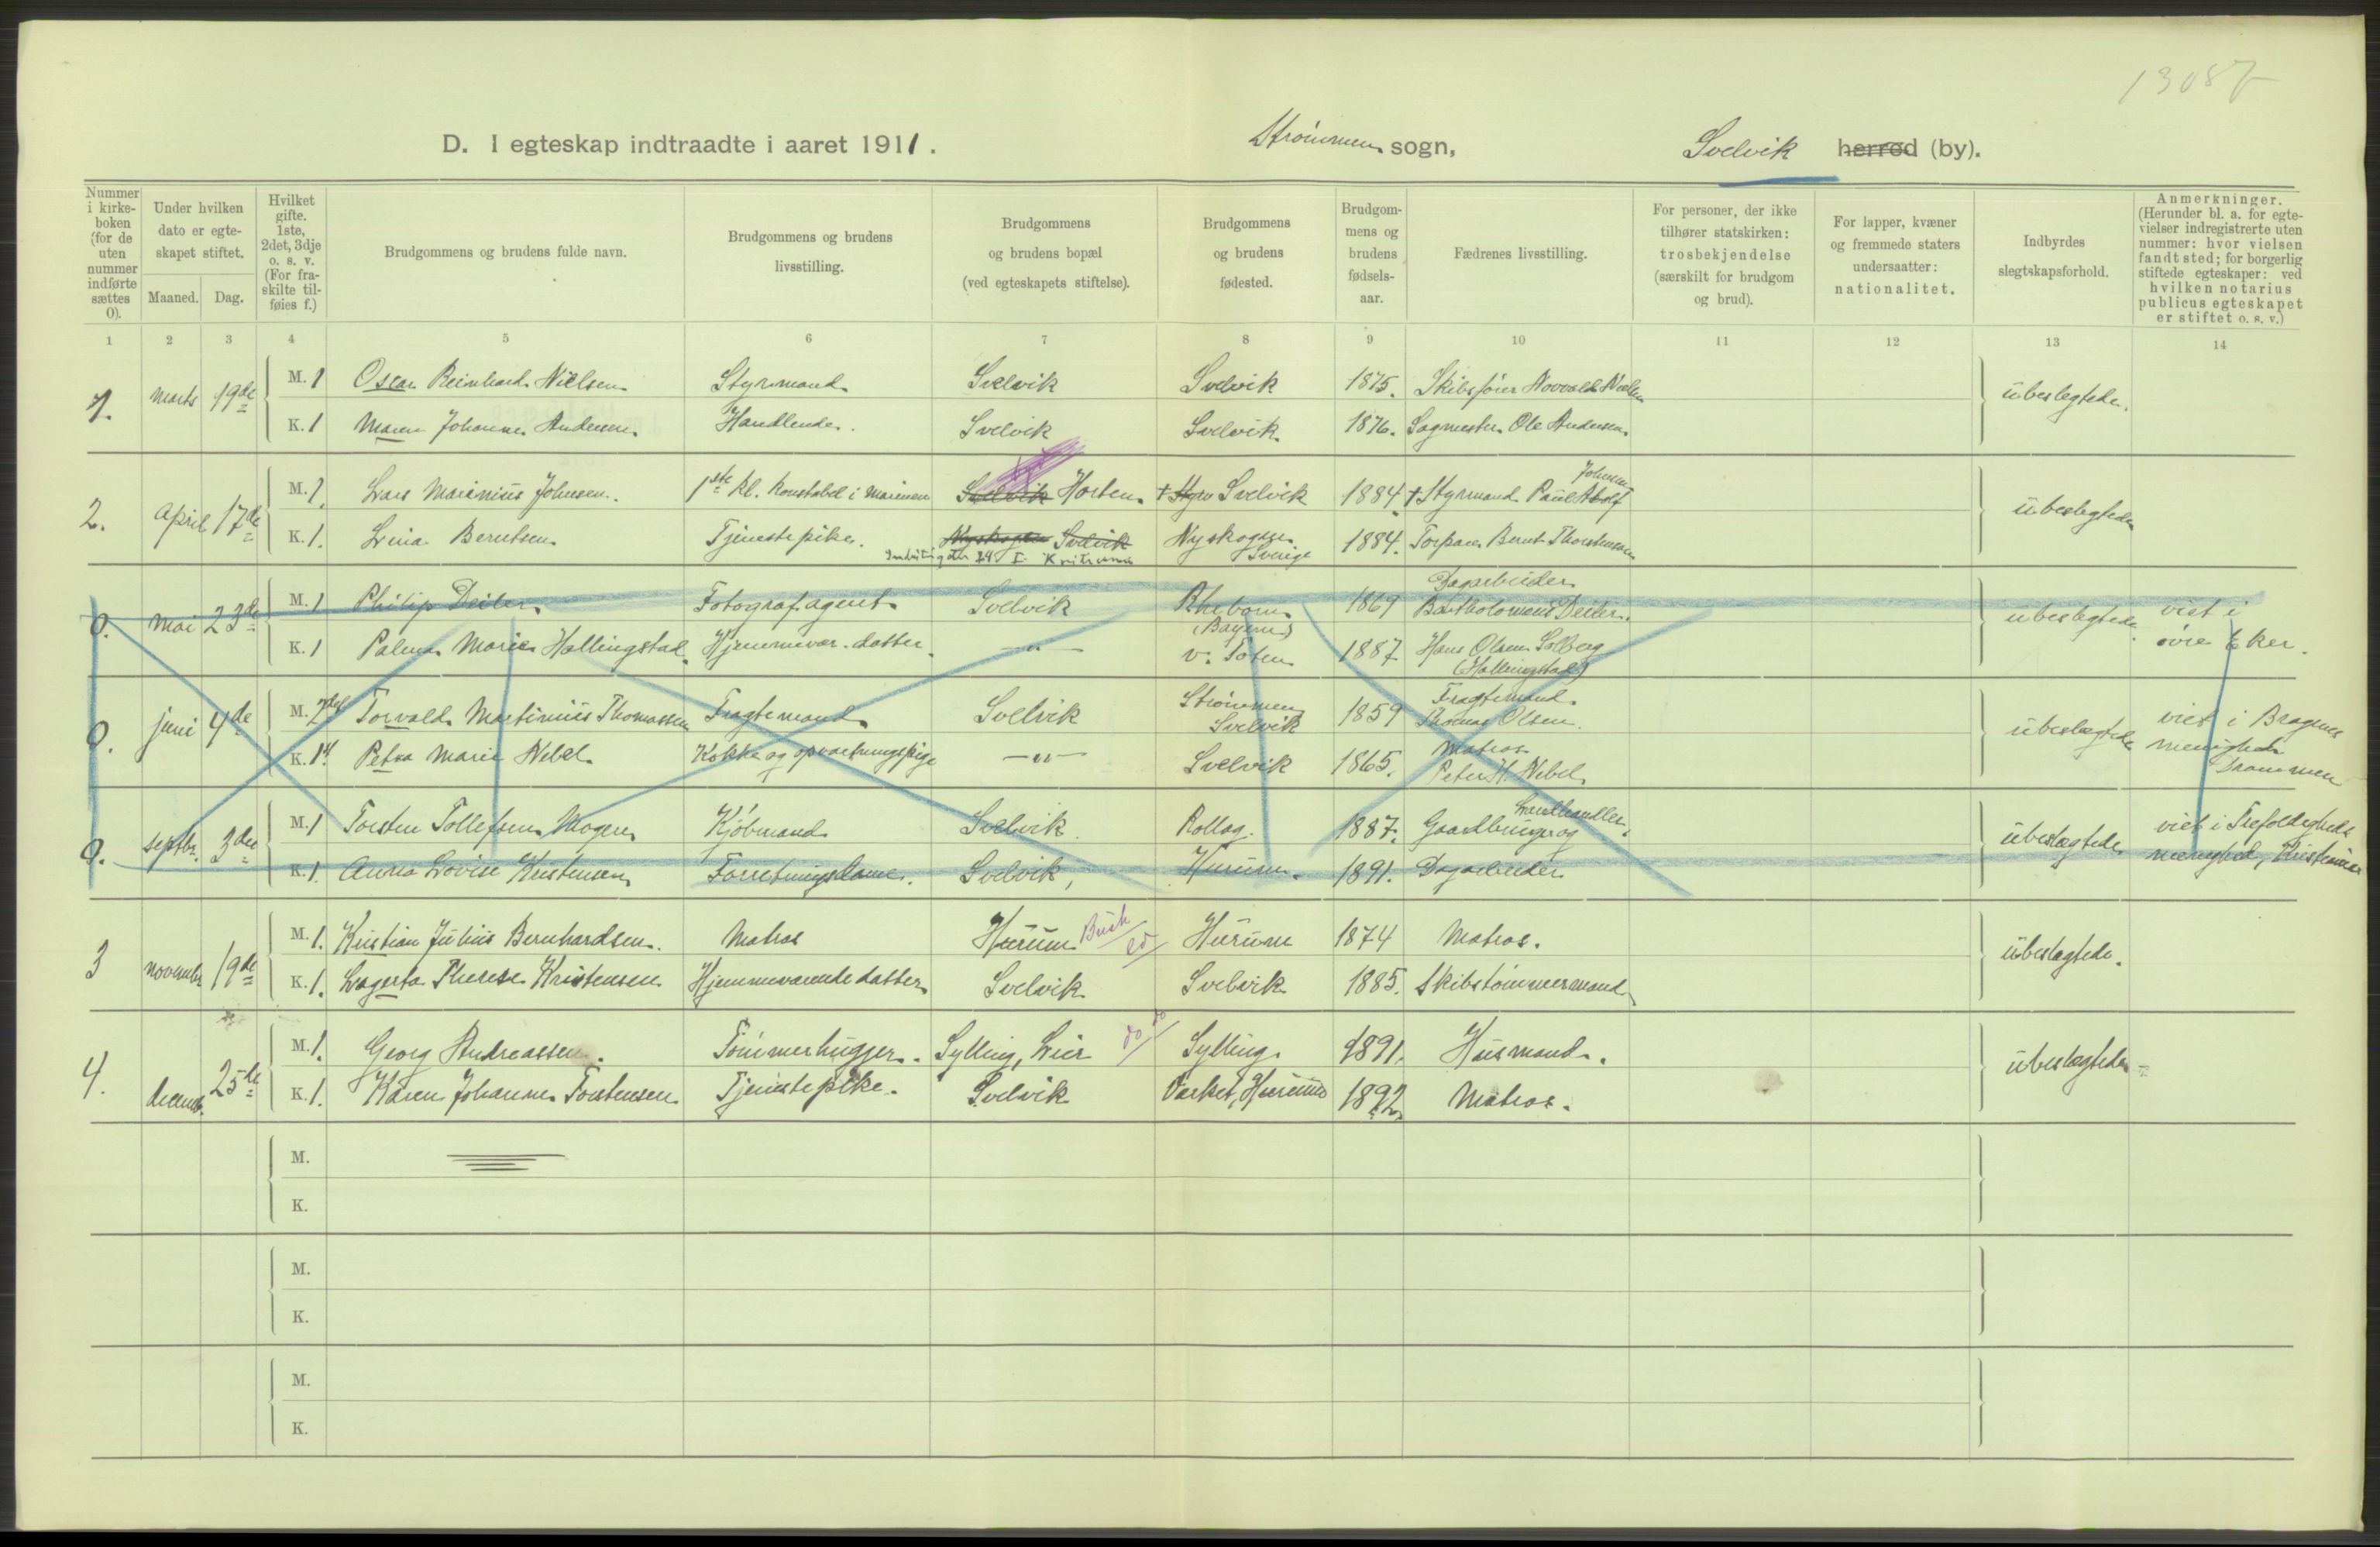 13087
D. I egteskap indtraadte i aaret 1911. Strømmen sogn, Svelvik herred (by).
Nummer i kirke-boken (for de uten nummer indførte sættes 0).
Under hvilken dato er egte-skapet stiftet.
Maaned. Dag.
Hvilket gifte. 1ste, 2det, 3dje o. s. v. (For fra-skilte til-føies f.)
Brudgommens og brudens fulde navn.
Brudgommens og brudens livsstilling.
Brudgommens og brudens bopæl (ved egteskapets stiftelse).
Brudgommens og brudens fødested.
Brudgom-mens og brudens fødsels-aar.
Fædrenes livsstilling.
For personer, der ikke tilhører statskirken: trosbekjendelse (særskilt for brudgom og brud).
For lapper, kvæner og fremmede staters undersaatter: nationalitet.
Indbyrdes slegtskapsforhold.
Anmerkninger. (Herunder bl. a. for egte-vielser indregistrerte uten nummer: hvor vielsen fandt sted; for borgerlig stiftede egteskaper: ved hvilken notarius publicus egteskapet er stiftet o. s. v.)
1 2 3 4 5 6 7 8 9 10 11 12 13 14
1. Marts 19de M. 1 Oscar Reinhard Nielsen Styrmand Svelvik Svelvik 1875. Skibsfører Nielsen ubeslegtede.
K. 1 Maren Johanne Andersen. Handlende. Svelvik Svelvik. 1876. Sagmester Ole Andersen
2. April 17de M. 1. Lars Marinius Johnsen. 1ste kl. Konstabel i Marinen Svelvik Horten + Svelvik 1884. + Styrmand Paul Adolf Johnsen ubeslegtede
K. 1. Lina Berntsen Tjenestepike. Nyskogen Svelvik Nyskogen Sverige 1884. Torpare Bernt Thorstensen
24 I Kristiania
0. mai 23de M. 1 Philip Deiler Fotografagent Svelvik (Bayern) 1869 Dagarbeider Bartholomeus Deiler. ubeslegtede. viet i øvre Eker.
K. 1 Palma Marie Hallingstad. Hjemmevær. datter. —"— v. Toten 1887 Hans Olsen Solberg (Hallingstad)
0. juni 4de M. 2det Torvald Martinius Thomassen Fragtemand Svelvik Strømmen Svelvik 1859 Fragtemand Thomas Olsen. ubeslægtede viet i Bragenes menighed Drammen
K. 1st Petra Marie Nebel. Kokke og opvartningspige —"— Svelvik 1865. Matros Peter H. Nebel.
0. septbr. 3die M. 1 Torsten Tollefsen Mogen Kjøbmand Svelvik. Rollag. 1887. Gaardbruger og Landhandler. ubeslægtede viet i Trefoldigheds menighed, Kristiania
K. 1. Anna Lovise Kristensen Forretningsdame. Svelvik, Hurum. 1891. Dagarbeider
3 november 19de M. 1. Kristian Julius Bernhardsen. Matros Hurum Busk Hurum 1874 Matros. ubeslægtede.
K. 1. Lagerta Therese Kristensen Hjemmeværende datter Svelvik Svelvik 1885. Skibstømmermand
4. decemb. 25de M. 1. Georg Andreassen. Tømmerhugger. Sylling, Lier do do Sylling. 1891. Husmand. ubeslægtede
K. 1. Karen Johanne Torstensen Tjenestepike. Svelvik Værket, Hurum 1892 Matros.
M.
K.
M.
K.
M.
K.